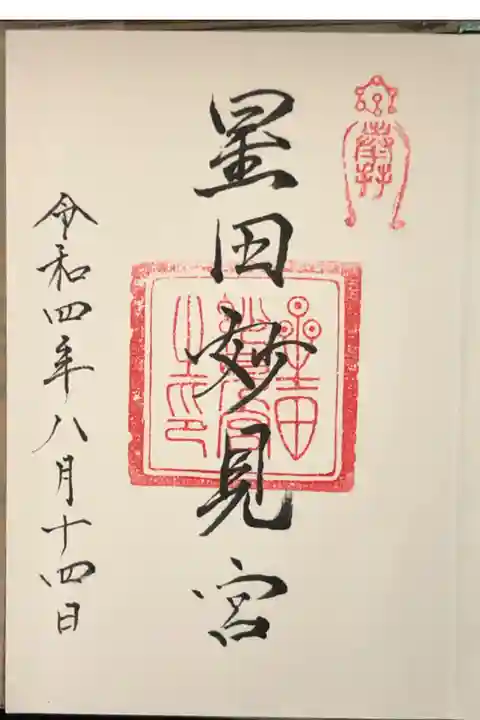 奉拝
星田妙見宮
星田妙見宮之印
令和四年八月十四日